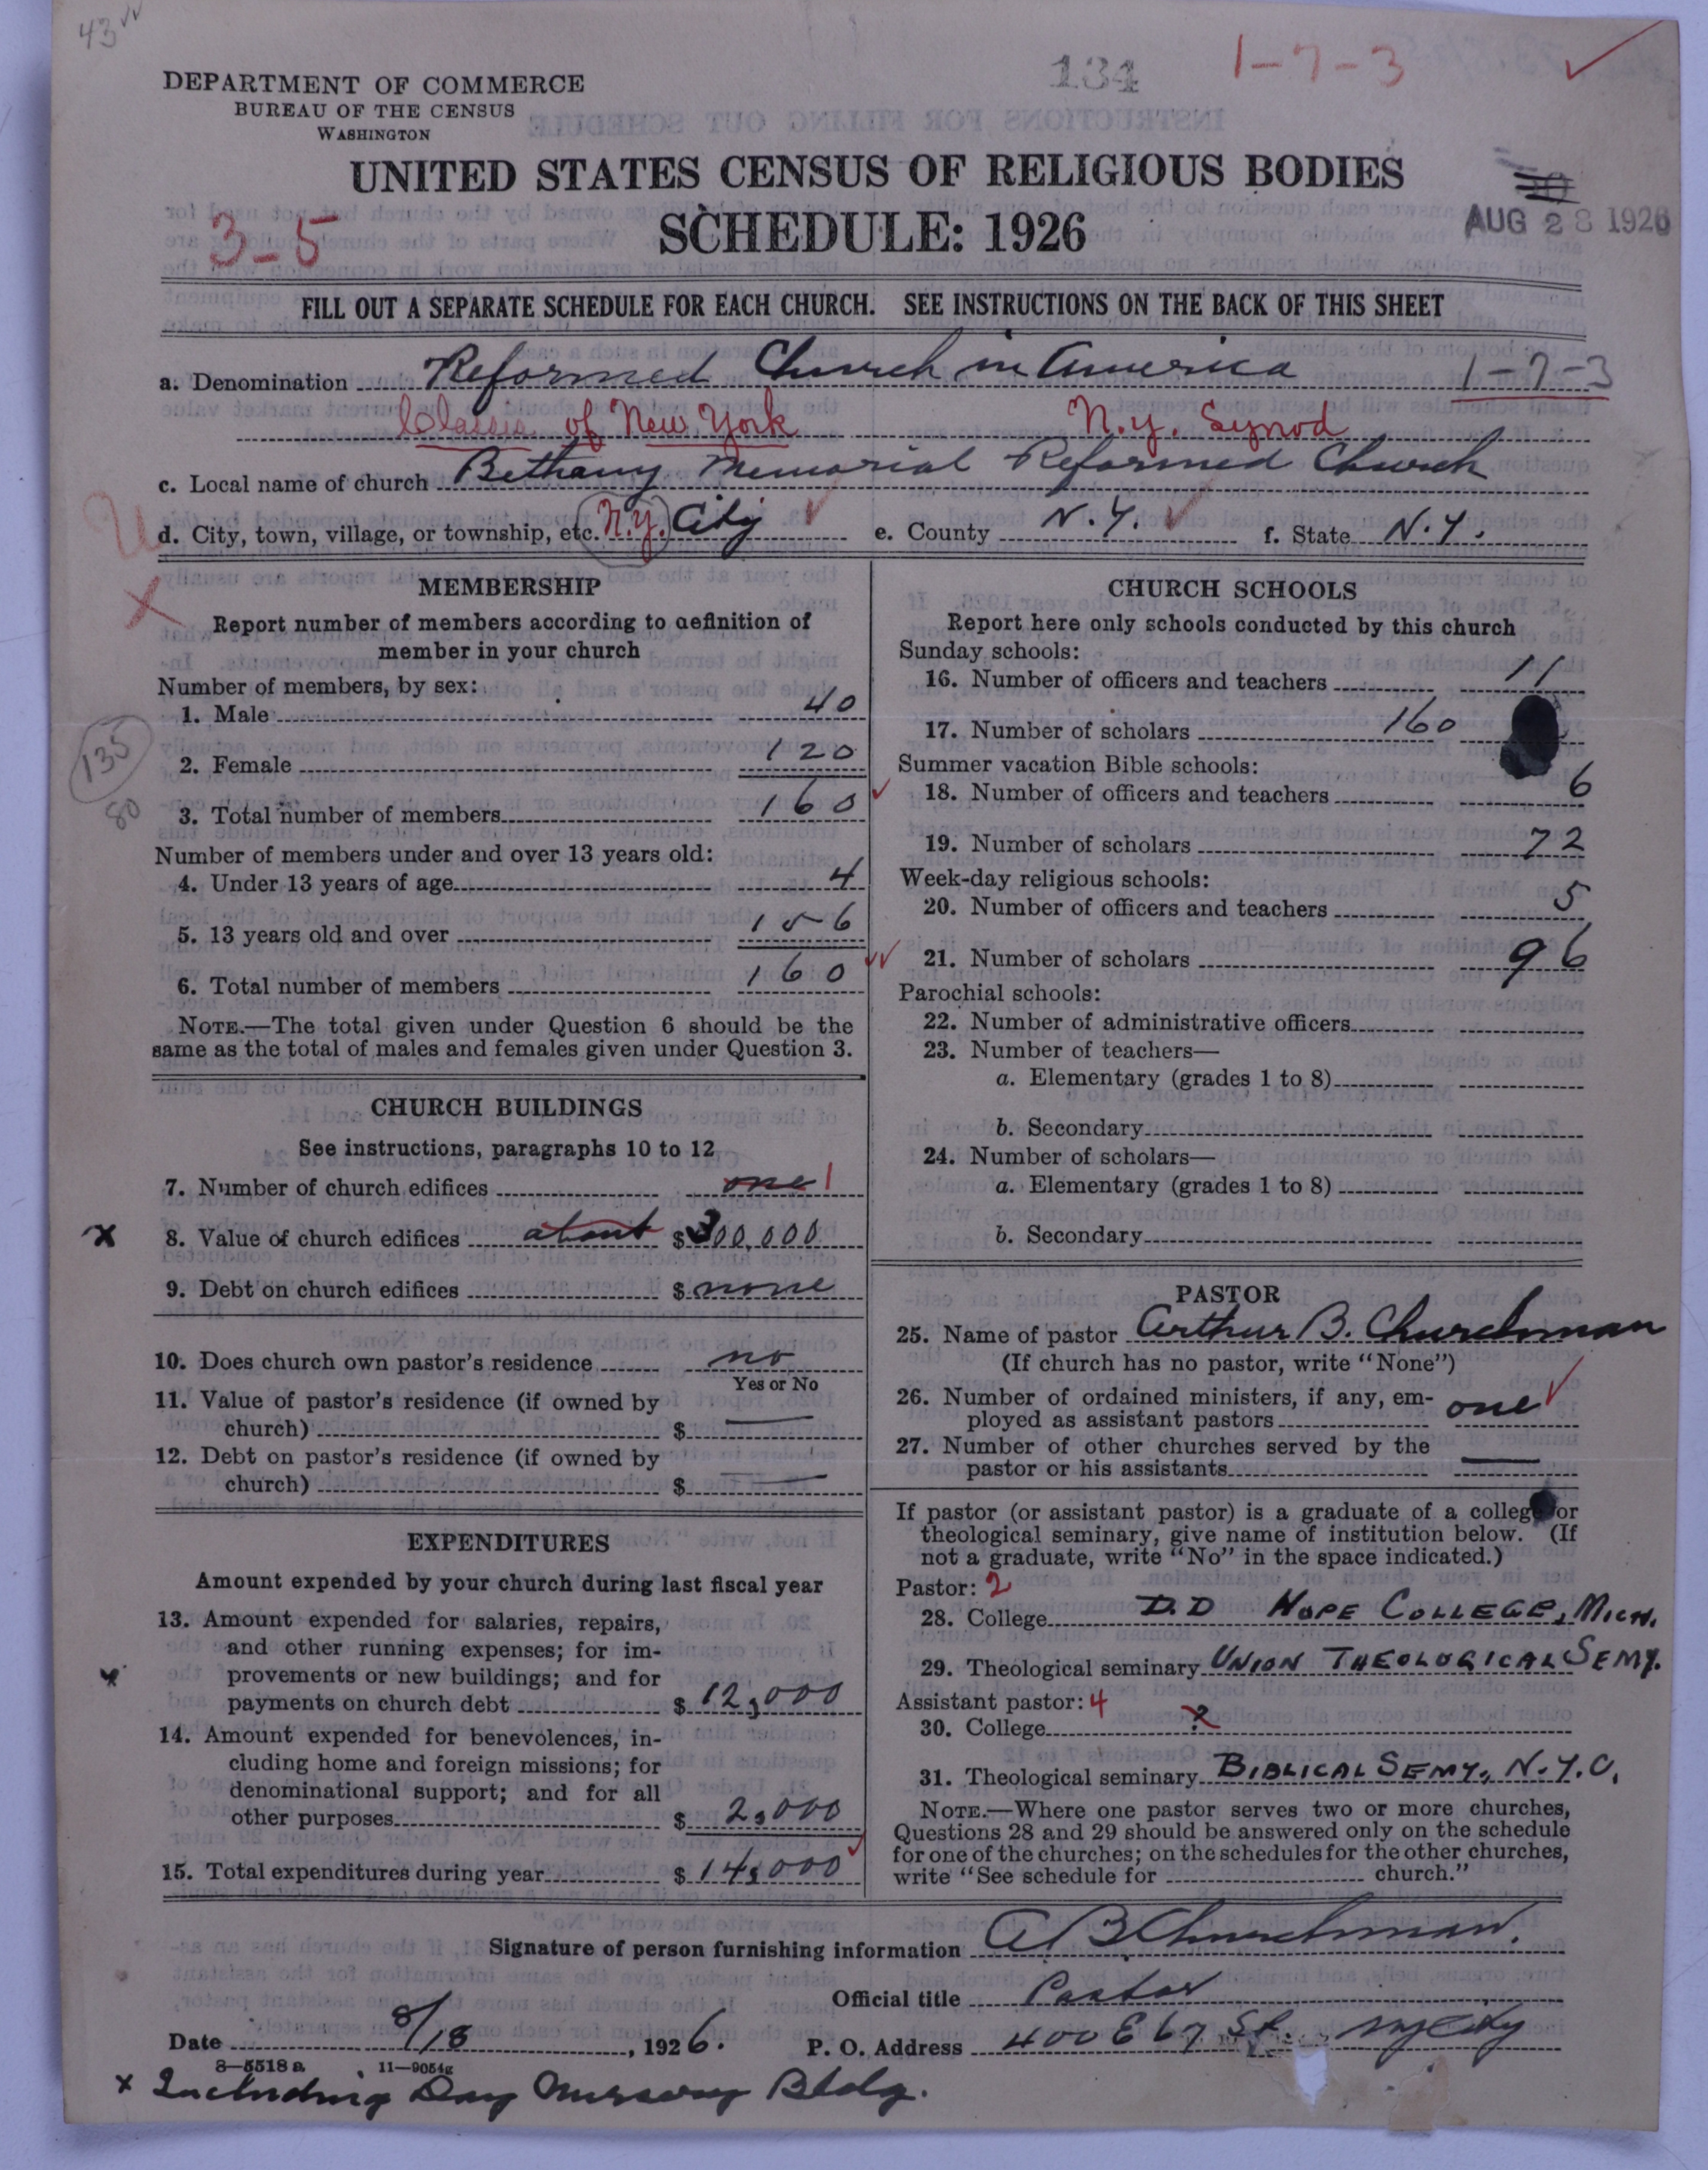 43
134
1-7-3
DEPARTMENT OF COMMERCE
BUREAU OF THE CENSUS
WASHINGTON
UNITED STATES CENSUS OF RELIGIOUS BODIES
SCHEDULE: 1926
3-5
AUG 28 1926
FILL OUT A SEPARATE SCHEDULE FOR EACH CHURCH. SEE INSTRUCTIONS ON THE BACK OF THIS SHEET
a. Denomination Reformed Church in America 1-7-3
Classis of New York N.Y. Synod
c. Local name of church Bethany Memorial Reformed Church
d. City, town, village, or township, etc. N.Y. City e. County N.Y. f. State N.Y.
MEMBERSHIP
Report number of members according to definition of
member in your church
Number of members, by sex:
1. Male 40
2. Female 120
135
80
3. Total number of members 160
Number of members under and over 13 years old:
4. Under 13 years of age 4
5. 13 years old and over 156
6. Total number of members 160
NOTE.—The total given under Question 6 should be the
same as the total of males and females given under Question 3.
CHURCH BUILDINGS
See instructions, paragraphs 10 to 12
7. Number of church edifices one 1
x 8. Value of church edifices about $300,000
9. Debt on church edifices $ none
10. Does church own pastor's residence no
Yes or No
11. Value of pastor's residence (if owned by
church) $ —
12. Debt on pastor's residence (if owned by
church) $ —
EXPENDITURES
Amount expended by your church during last fiscal year
13. Amount expended for salaries, repairs,
and other running expenses; for im-
x provements or new buildings; and for
payments on church debt $ 12,000
14. Amount expended for benevolences, in-
cluding home and foreign missions; for
denominational support; and for all
other purposes $ 2,000
15. Total expenditures during year $ 14,000
CHURCH SCHOOLS
Report here only schools conducted by this church
Sunday schools:
16. Number of officers and teachers 11
17. Number of scholars 160
Summer vacation Bible schools:
18. Number of officers and teachers 6
19. Number of scholars 72
Week-day religious schools:
20. Number of officers and teachers 5
21. Number of scholars 96
Parochial schools:
22. Number of administrative officers
23. Number of teachers—
a. Elementary (grades 1 to 8)
b. Secondary
24. Number of scholars—
a. Elementary (grades 1 to 8)
b. Secondary
PASTOR
25. Name of pastor Arthur B. Churchman
(If church has no pastor, write "None")
26. Number of ordained ministers, if any, em-
ployed as assistant pastors one
27. Number of other churches served by the
pastor or his assistants —
If pastor (or assistant pastor) is a graduate of a college or
theological seminary, give name of institution below. (If
not a graduate, write "No" in the space indicated.)
Pastor: 2
28. College D.D HOPE COLLEGE, MICH.
29. Theological seminary UNION THEOLOGICAL SEMY.
Assistant pastor: 4
30. College ?
31. Theological seminary BIBLICAL SEMY., N.Y.C.
NOTE.—Where one pastor serves two or more churches,
Questions 28 and 29 should be answered only on the schedule
for one of the churches; on the schedules for the other churches,
write "See schedule for church."
Signature of person furnishing information A B Churchman.
Official title Pastor
Date 8/18, 1926. P. O. Address 400 E 67 St. NYCity
8—5518 a 11—9054g
x Including Day Nursery Bldg.